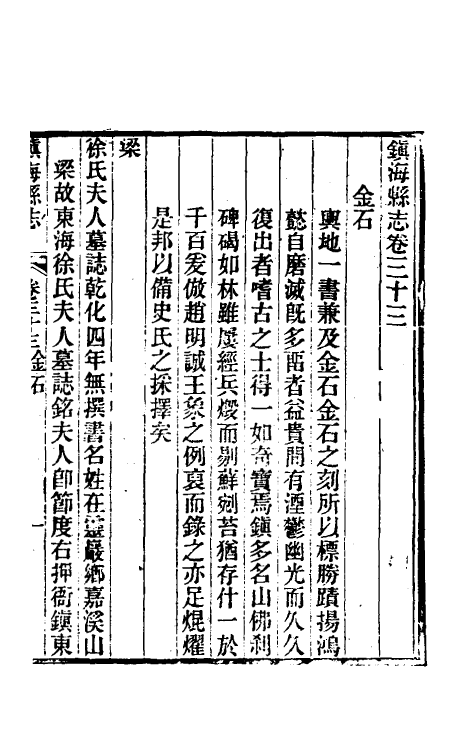 鎮海縣志卷三十三
金石
輿地一書兼及金石金石之刻所以標勝蹟揚鴻
懿自磨滅旣多而者益貴間有湮鬱幽光而久久
復出者嗜古之士得一如奇寶焉鎮多名山佛刹
碑碣如林雖屢經兵燬而剔蘚剜苔猶存什一於
千百爰倣趙明誠王象之例裒而錄之亦足焜燿
是邦以備史氏之採擇矣
梁
徐氏夫人墓誌乾化四年無撰書名姓在靈巖鄉嘉溪山
梁故東海徐氏夫人墓誌銘夫人卽節度右押衙鎮東
鎮海縣志 卷三十三金石 一